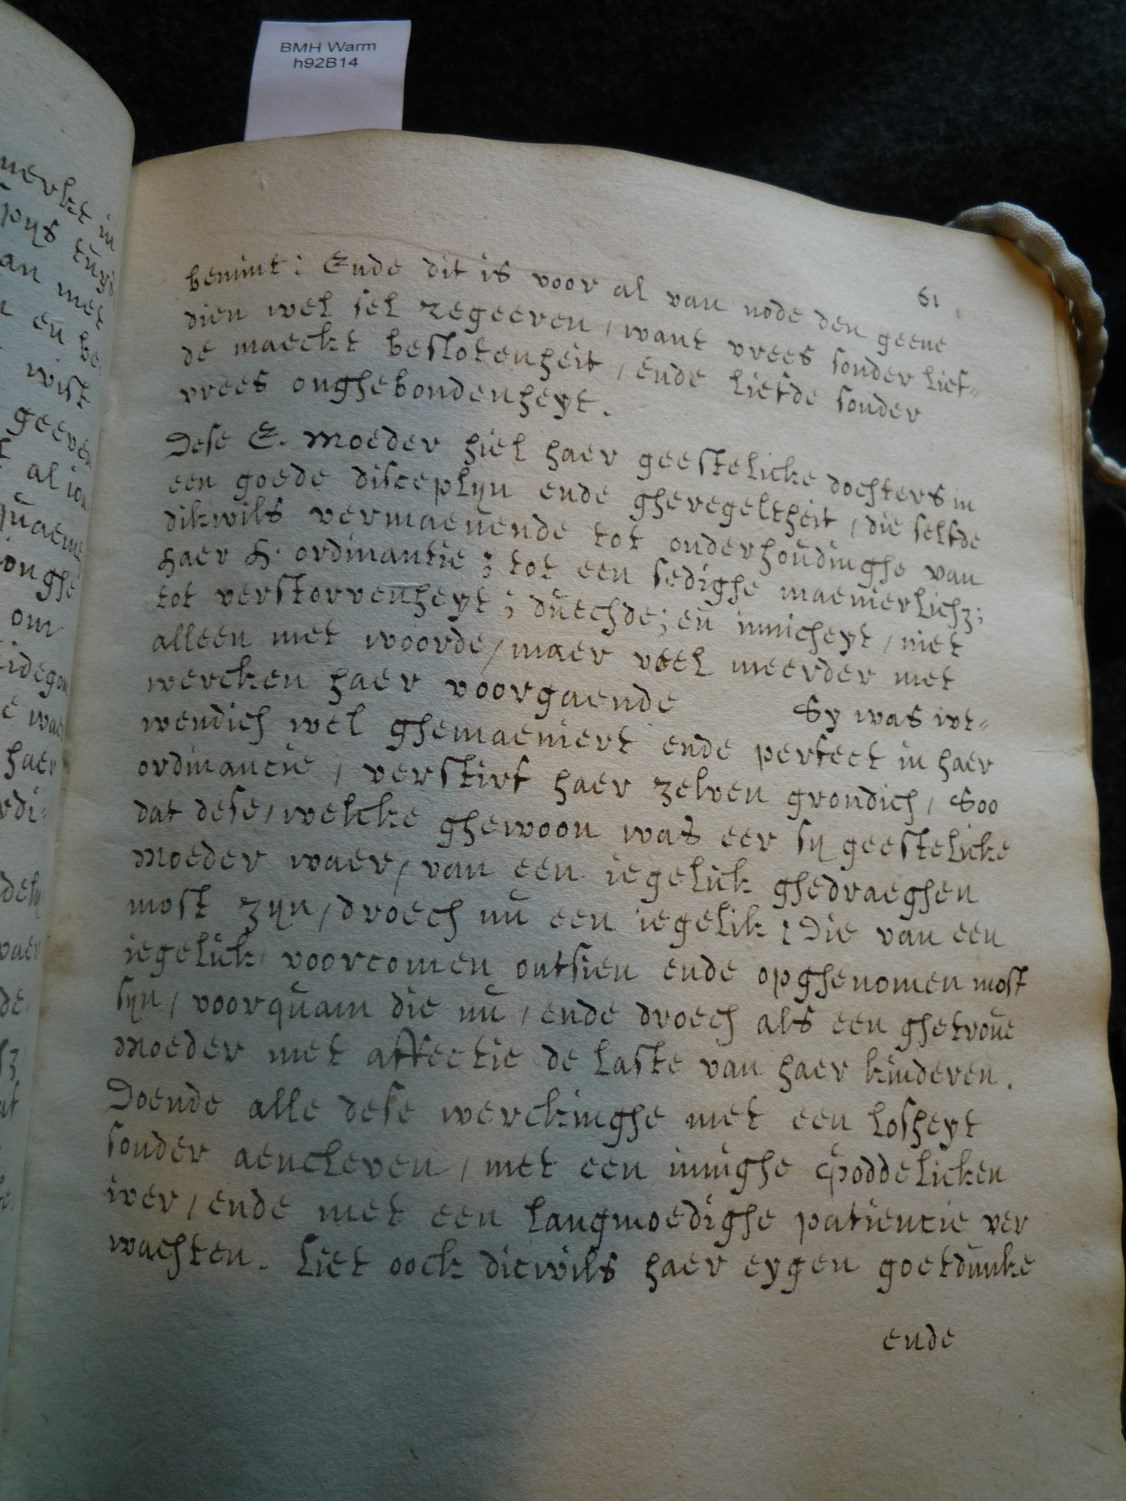 BMH Warm
h92B14
61
bemint: Ende dit is voor al van node den geene
dien wel sel zegeeren / want vrees sonder lief-
de maeckt beslotenheit / ende liefde sonder
vrees onghebondenheyt.
Dese E. Moeder hiel haer geestelicke dochters in
een goede disceplyn ende gheregeltheit / die selfde
dikwils vermaenende tot onderhoudinghe van
haer H. ordinantie; tot een sedighe maenierlich;
tot verstorvenheyt; duechde; en innicheyt / niet
alleen met woorde / maer veel meerder met
wercken haer voorgaende Sy was wt-
wendich wel ghemaeniert ende perfect in haer
ordinancie / verstirf haer zelven grondich / Soo
dat dese / welcke ghewoon was eer sy geestelicke
Moeder waer / van een iegelick ghedraeghen
most zyn / droech nu een iegelik: Die van een
iegelick voorcomen ontsien ende opghenomen most
syn / voorquam die nu / ende droech als een ghetroue
Moeder met affectie de laste van haer kinderen.
Doende alle dese werckinghe met een losheyt
sonder aencleven / met een innighe goddelicken
iver / ende met een langmoedighe patientie ver
wachten. Liet oock dicwils haer eygen goetdunke
ende
merkt in
spys tuys
an met
en be
wist
geeven
al ion
quaeme
onghe
om
haer